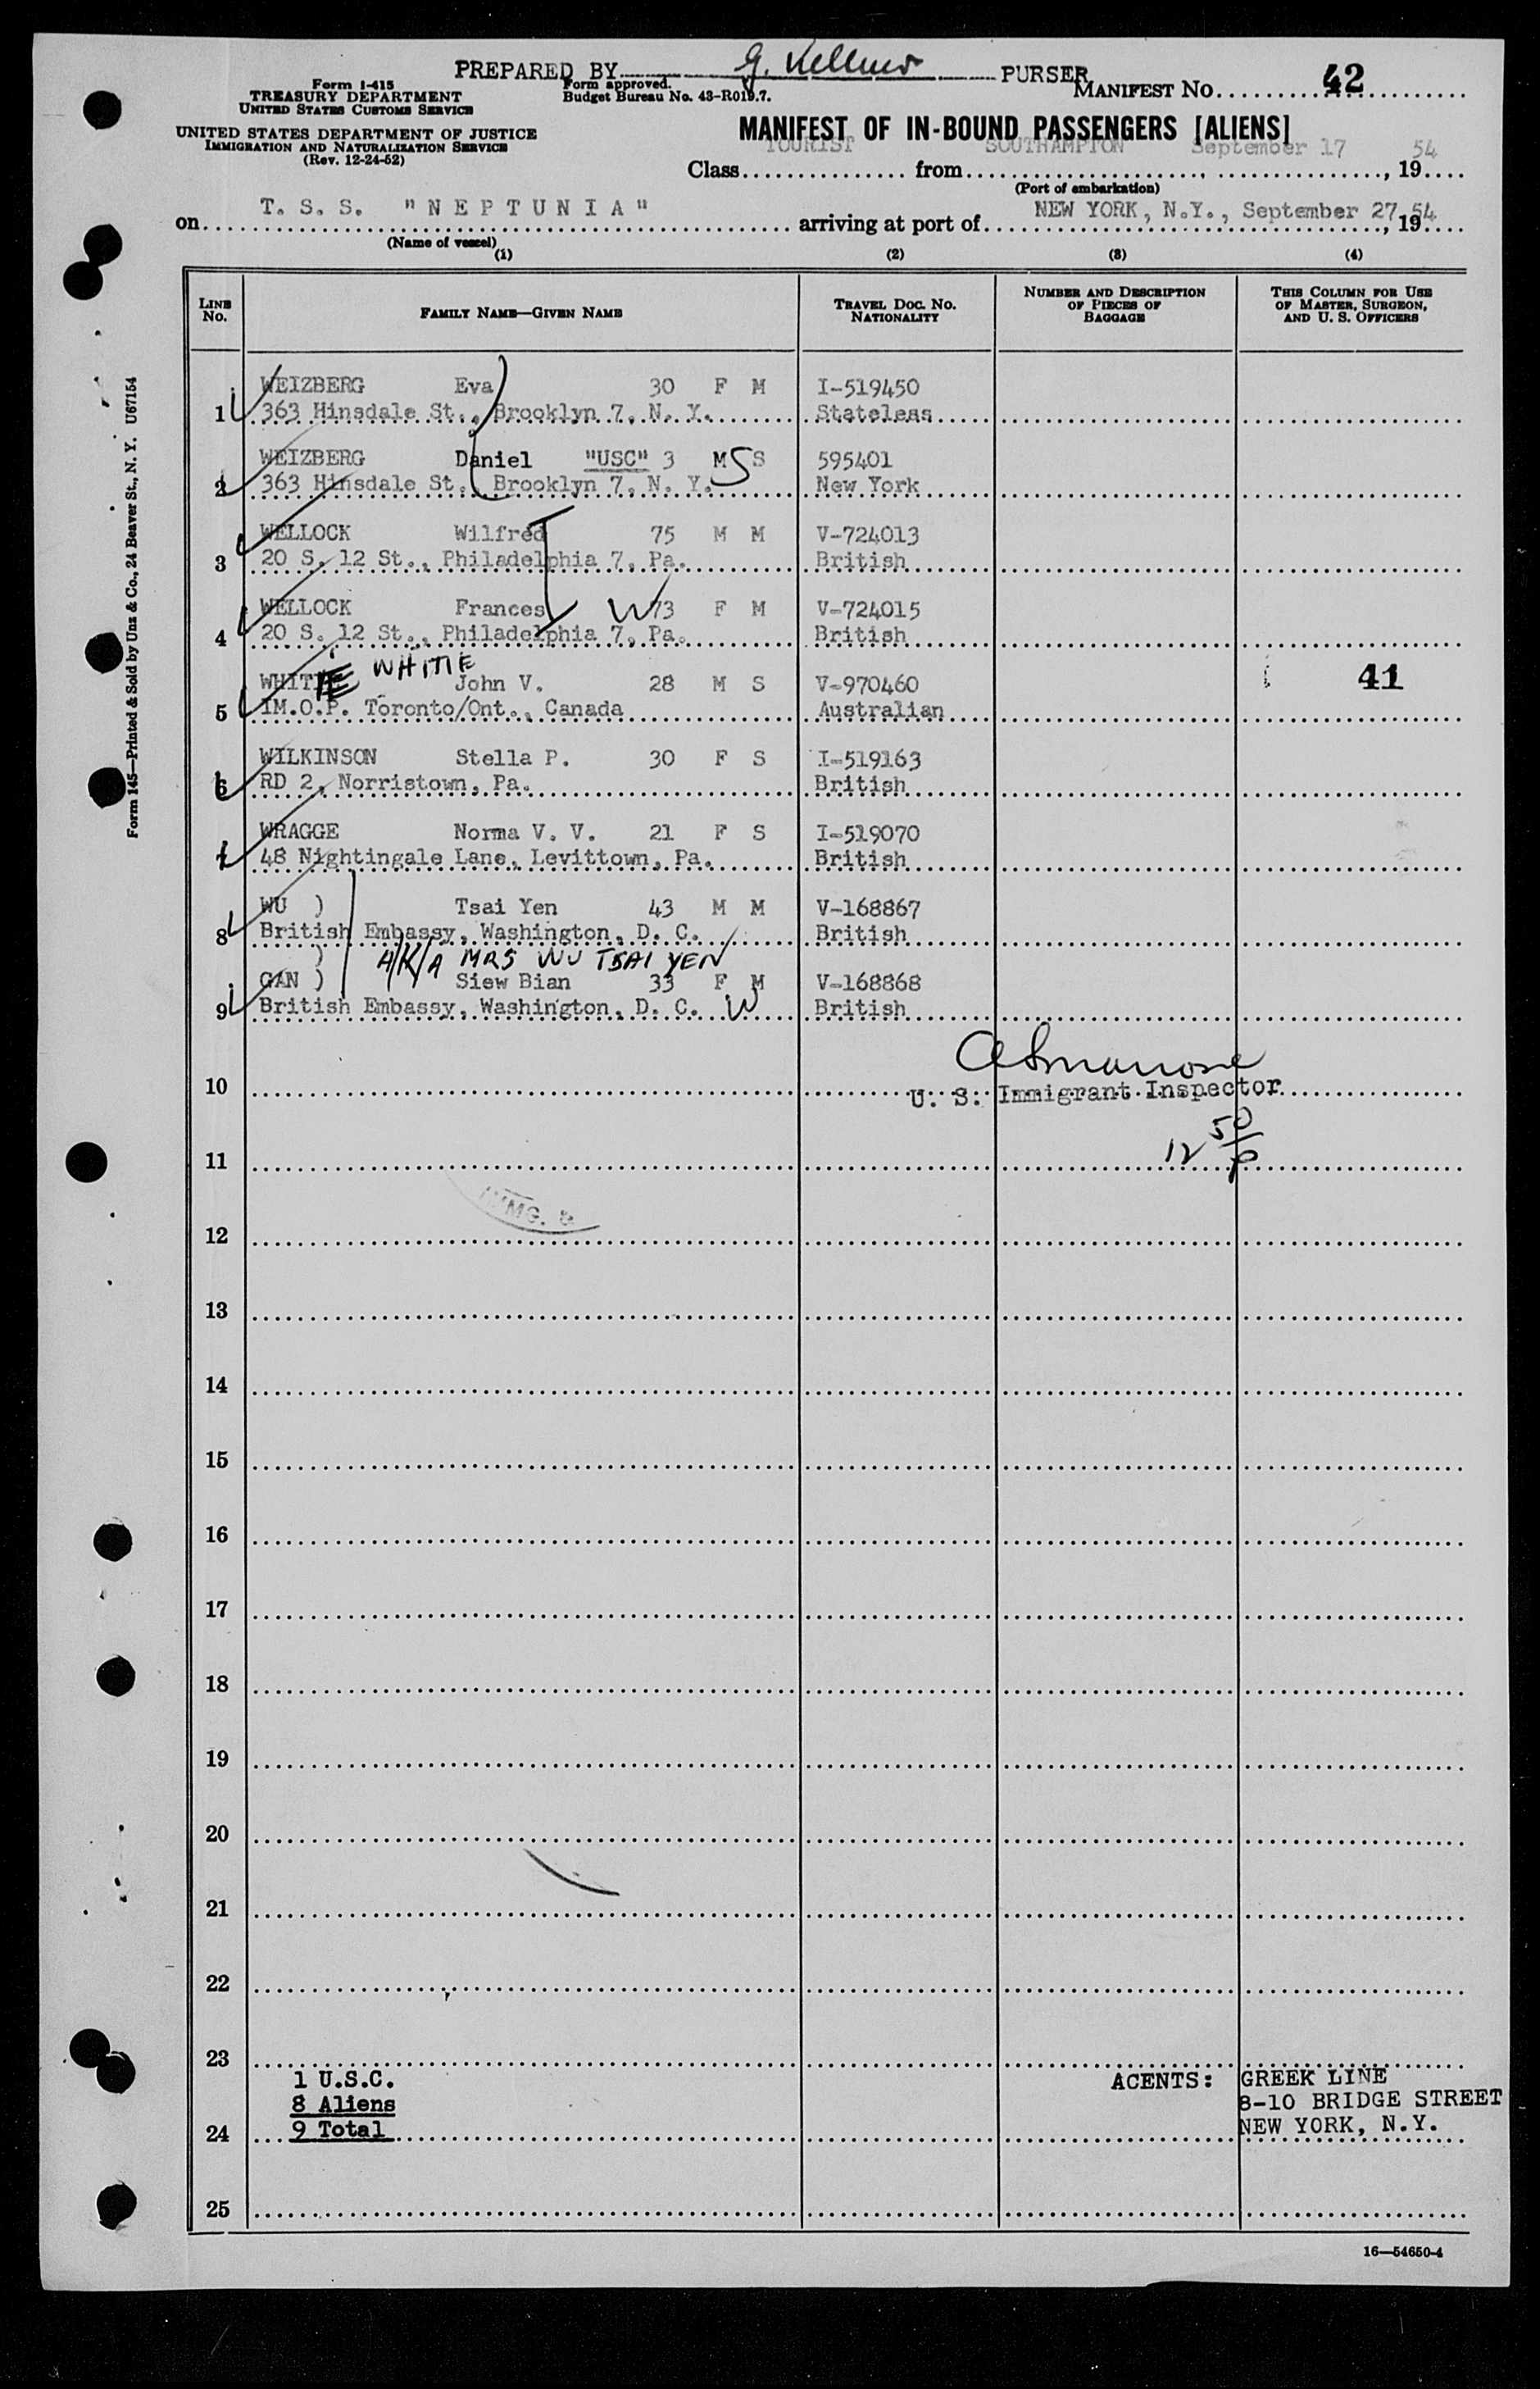 PREPARED BY G. Kellner PURSER
Form I-415
TREASURY DEPARTMENT
UNITED STATES CUSTOMS SERVICE
Form approved.
Budget Bureau No. 43-R019.7.
MANIFEST NO. 42
UNITED STATES DEPARTMENT OF JUSTICE
IMMIGRATION AND NATURALIZATION SERVICE
(Rev. 12-24-52)
MANIFEST OF IN-BOUND PASSENGERS [ALIENS]
Class TOURIST from SOUTHAMPTON, September 17, 1954
(Port of embarkation)
on T. S. S. "NEPTUNIA" arriving at port of NEW YORK, N.Y., September 27, 1954
(Name of vessel)
(1) (2) (3) (4)
LINE NO.
FAMILY NAME—GIVEN NAME
TRAVEL DOC. NO.
NATIONALITY
NUMBER AND DESCRIPTION
OF PIECES OF
BAGGAGE
THIS COLUMN FOR USE
OF MASTER, SURGEON,
AND U. S. OFFICERS
WEIZBERG Eva 30 F M I-519450
1 363 Hinsdale St., Brooklyn 7, N. Y. Stateless
WEIZBERG Daniel "USC" 3 M S S 595401
2 363 Hinsdale St., Brooklyn 7, N. Y. New York
WELLOCK Wilfred 75 M M V-724013
3 20 S. 12 St., Philadelphia 7, Pa. British
WELLOCK Frances W 73 F M V-724015
4 20 S. 12 St., Philadelphia 7, Pa. British
WHITIE WHITIE John V. 28 M S V-970460 41
5 IM.O.P. Toronto/Ont., Canada Australian
WILKINSON Stella P. 30 F S I-519163
6 RD 2, Norristown, Pa. British
WRAGGE Norma V. V. 21 F S I-519070
7 48 Nightingale Lane, Levittown, Pa. British
WU ) Tsai Yen 43 M M V-168867
8 British Embassy, Washington, D. C. British
) A/K/A MRS WU TSAI YEN
GAN ) Siew Bian 33 F M V-168868
9 British Embassy, Washington, D. C. W British
10 U. S. Immigrant Inspector
12 50/p
11
IMMG. &
12
13
14
15
16
17
18
19
20
21
22
23
1 U.S.C.
8 Aliens
24 9 Total
AGENTS: GREEK LINE
8-10 BRIDGE STREET
NEW YORK, N.Y.
25
16—54650-4
Form 145—Printed & Sold by Unz & Co., 24 Beaver St., N. Y. U67154